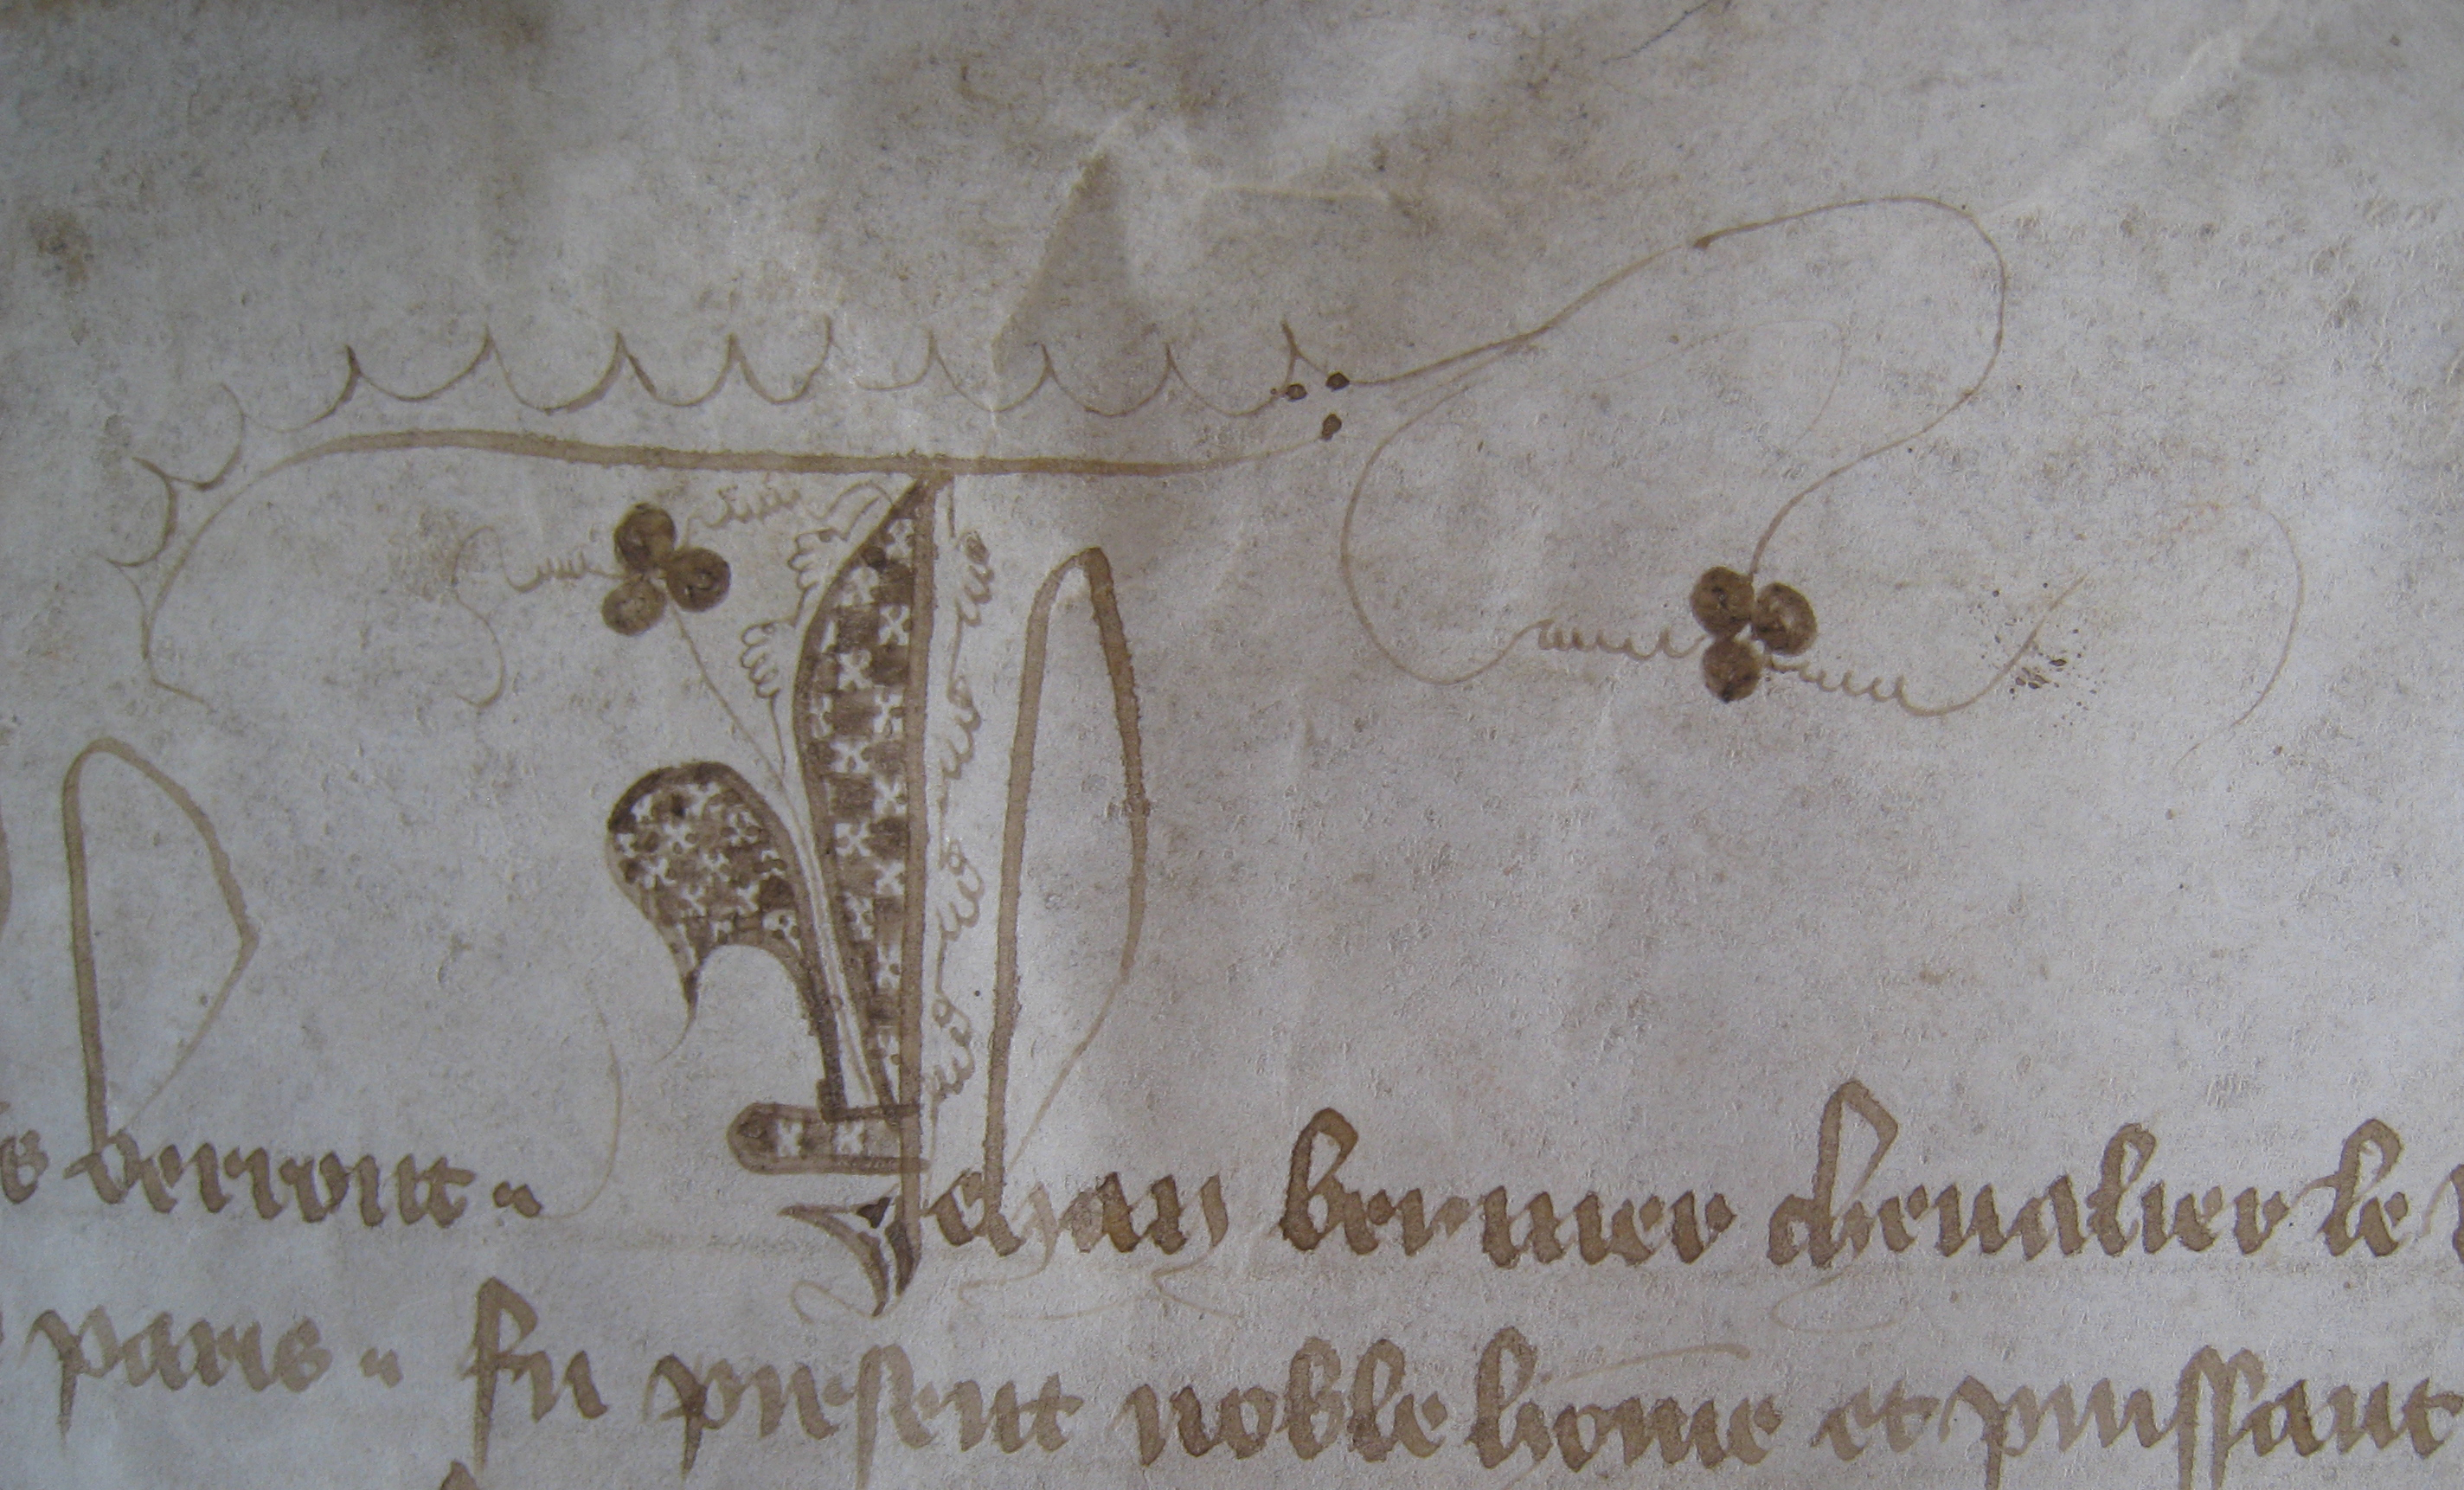 s verront. Jehan bernier chevalier le
paris. fu present noble home et puissant